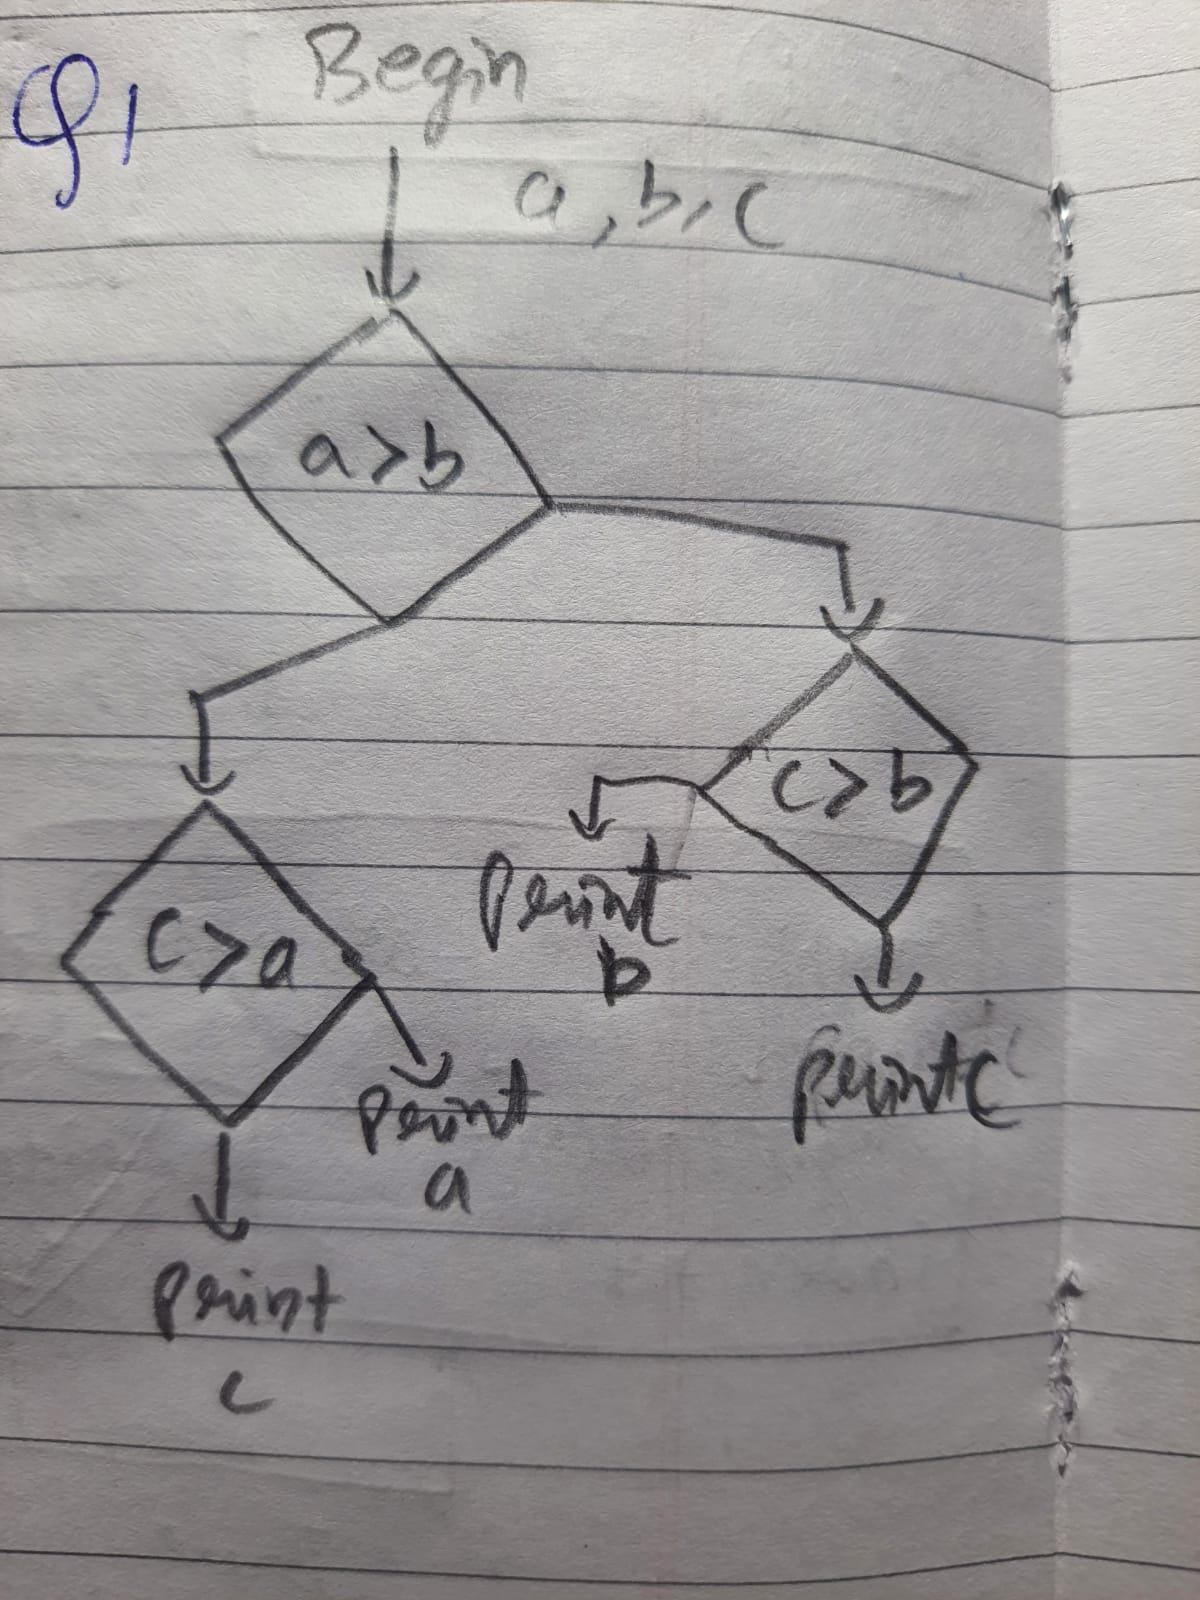 Q1
Begin
a, b, c
a>b
c>b
print
b
c>a
print c
print
a
print
c